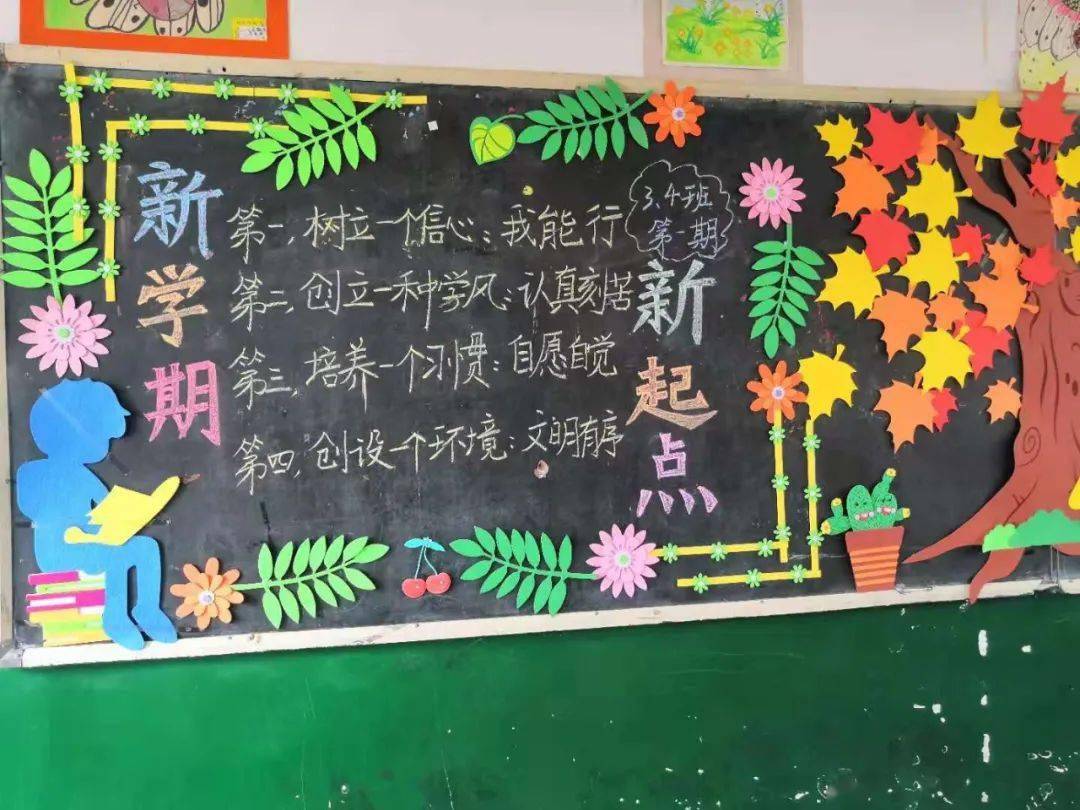 新学期
第一，树立一个信心：我能行
第二，创立一种学风：认真刻苦
第三，培养一个习惯：自愿自觉
第四，创设一个环境：文明有序
3.4班
第一期
新起点